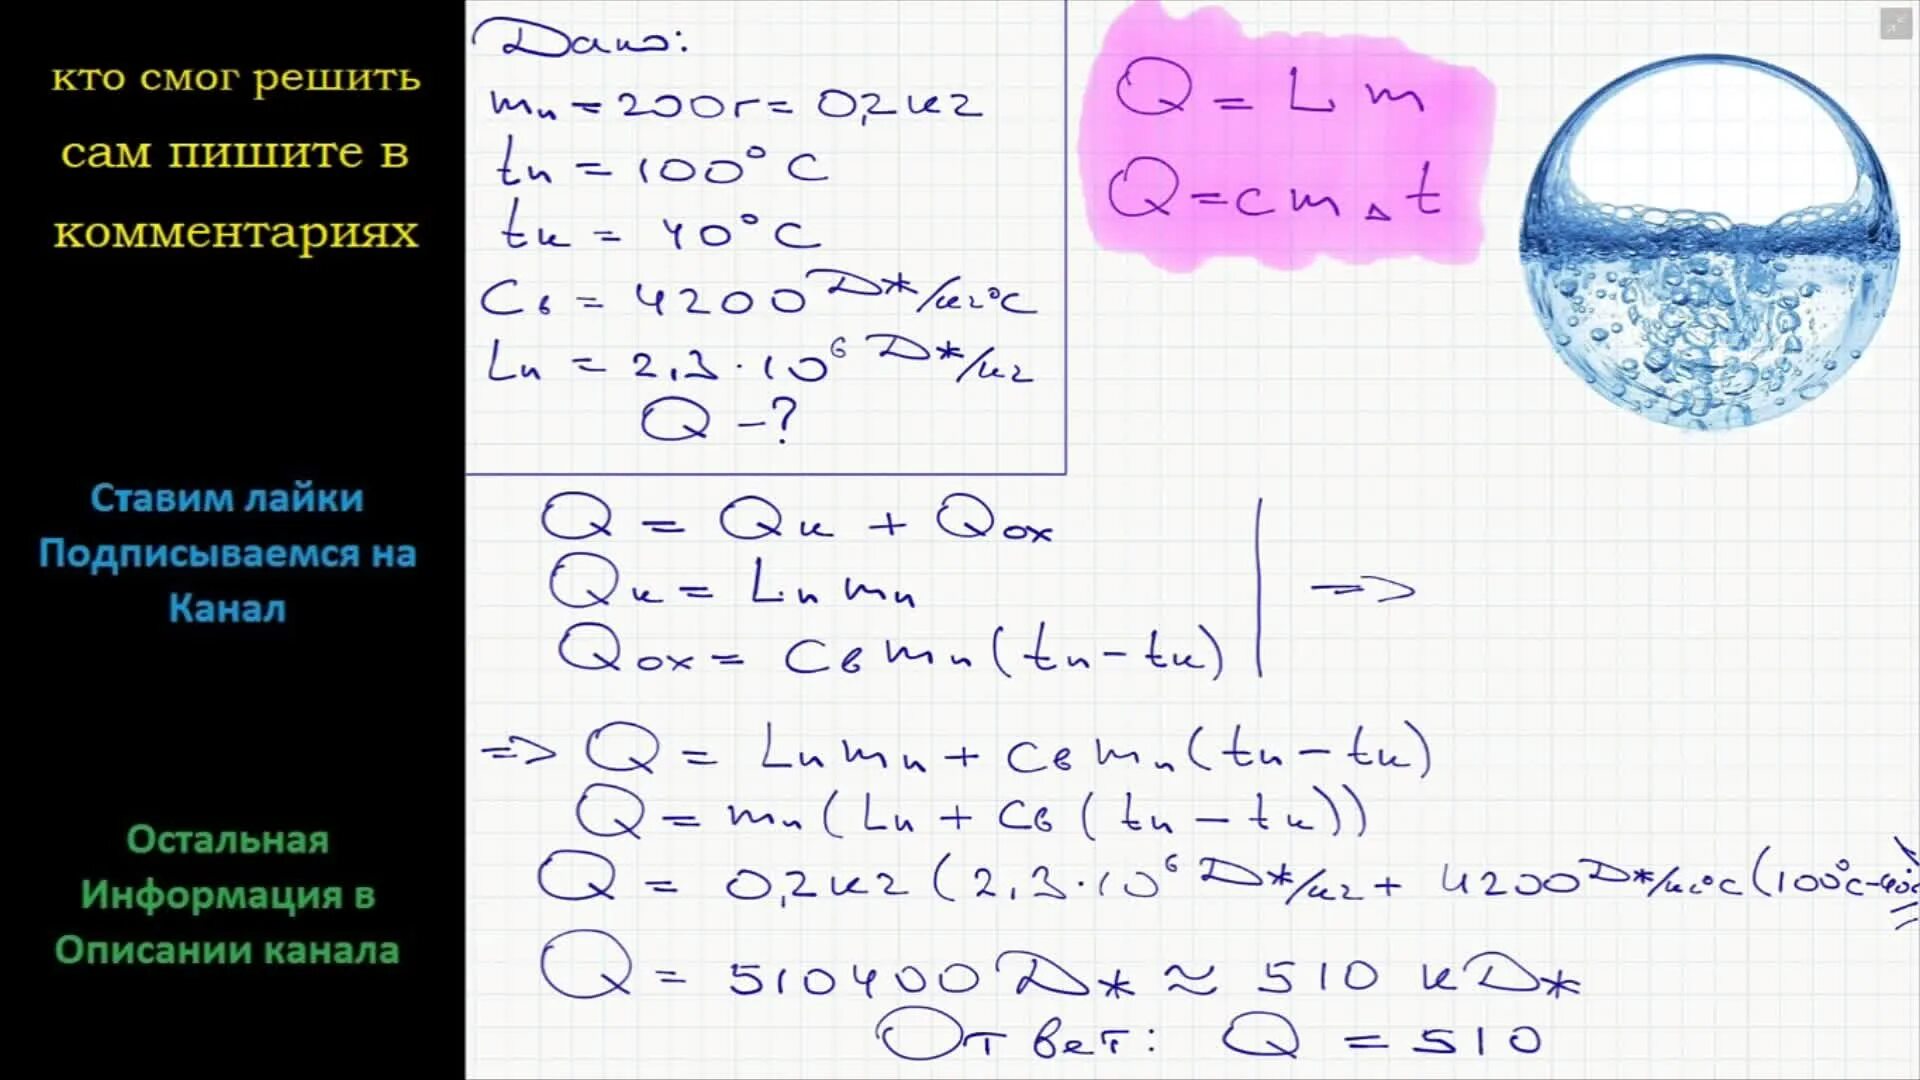 кто смог решить
сам пишите в
комментариях
Ставим лайки
Подписываемся на
Канал
Остальная
Информация в
Описании канала
Дано:
mп = 200г = 0,2 кг
tп = 100°C
tк = 40°C
Cв = 4200 Дж/кг°C
Lп = 2,3·10⁶ Дж/кг
Q -?
Q = Lm
Q = cm△t
Q = Qк + Qох
Qк = Lп mп
Qох = Cв mп (tп - tк)
=>
=> Q = Lп mп + Cв mп (tп - tк)
Q = mп (Lп + Cв (tп - tк))
Q = 0,2 кг (2,3·10⁶ Дж/кг + 4200 Дж/кг°C (100°C-40°C)) =
Q = 510400 Дж ≈ 510 кДж
Ответ: Q = 510